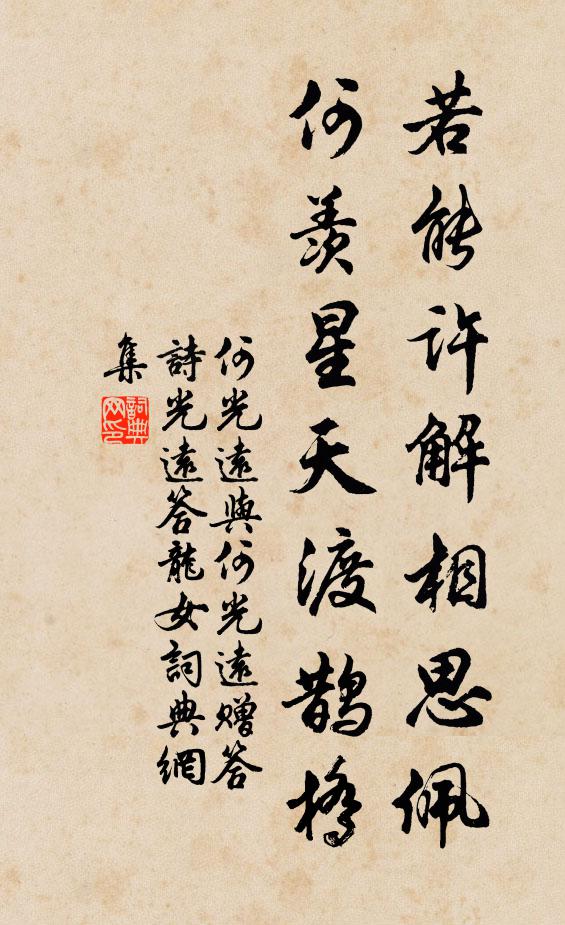 若能许解相思佩
何羡星天渡鹊橋
何光遠與何光遠赠答
詩光遠答龍女詞典網
集
詞典
网印